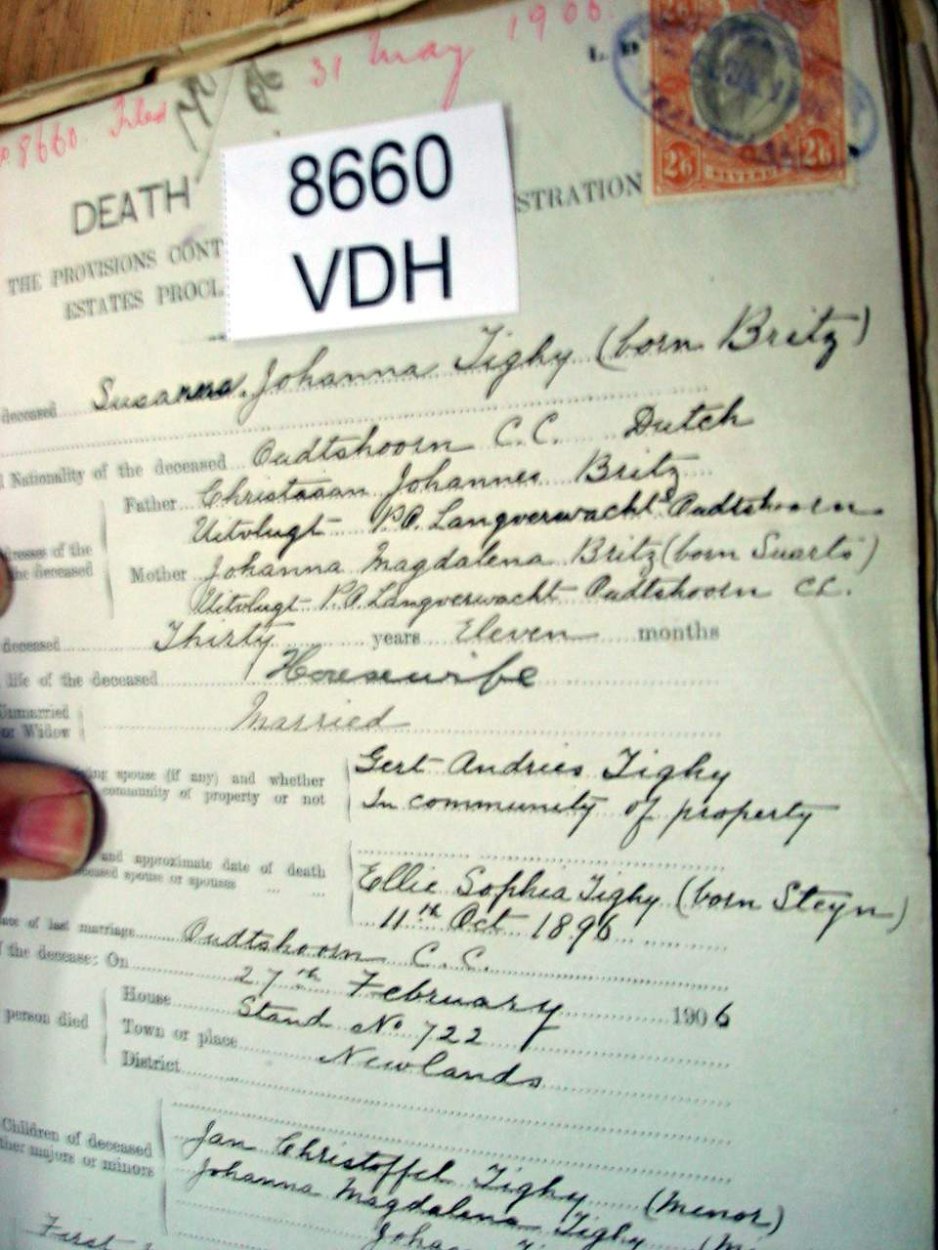 8660. Filed 31 May 1906.
L. D
2/6 2/6
REVENUE
8660
VDH
DEATH STRATION
THE PROVISIONS CONT
ESTATES PROCL
deceased Susanna Johanna Tighy (born Britz)
Nationality of the deceased Oudtshoorn C.C. Dutch
Father Christiaan Johannes Britz
Uitvlugt P.O. Langverwacht Oudtshoorn
resses of the
he deceased
Mother Johanna Magdalena Britz (born Suarts)
Uitvlugt P.O. Langverwacht Oudtshoorn CC.
deceased Thirty years Eleven months
life of the deceased Housewife
Unmarried
or Widow Married
ing spouse (if any) and whether Gert Andries Tighy
community of property or not In community of property
and approximate date of death
eased spouse or spouses ... ... Ellie Sophia Tighy (born Steyn)
11th Oct 1896
ace of last marriage Oudtshoorn C.C.
f the decease: On 27th February 1906
person died
House Stand No 722
Town or place Newlands
District
Children of deceased
ther majors or minors
Jan Christoffel Tighy (Minor)
Johanna Magdalena Tighy (Mi
Johan
First